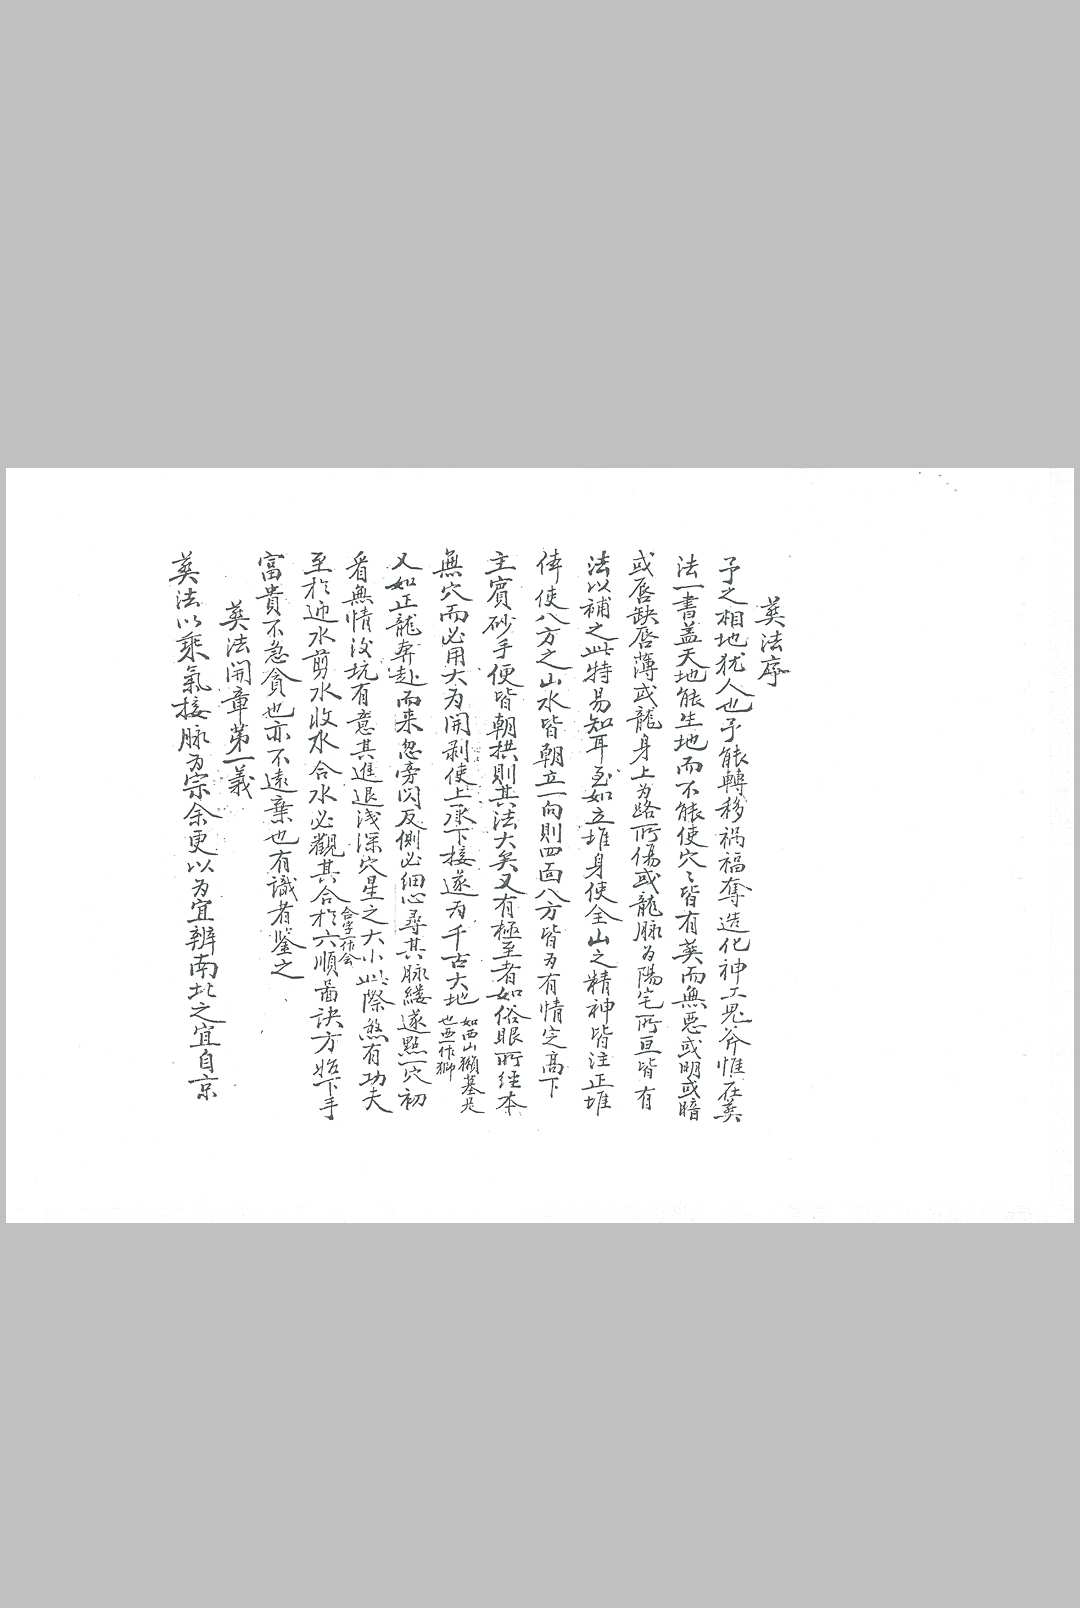 葬法序
予之相地犹人也予能轉移祸福奪造化神工鬼斧惟在葬
法一書盖天地能生地而不能使穴〻皆有葬而無恶或明或暗
或唇缺唇薄或龍身上为路所傷或龍脉为陽宅所亘皆有
法以補之此特易知耳至如立堆身使全山之精神皆注正堆
俾使八方之山水皆朝立一向則四面八方皆为有情定高下
主賓砂手便皆朝拱則其法大矣又有極至者如俗眼所经本
無穴而必用大为開剥使上承下接遂为千古大地
如西山獭墓是
也 一作獅
又如正龍奔赴而来忽旁闪反側必细心尋其脉缕遂點一穴初
看無情没坑有意其進退浅深穴星之大小此際煞有功夫
至於迎水剪水收水合水必觀其合於六順啚訣方始下手
合字一作会
富貴不急貪也亦不遠棄也有識者鉴之
葬法開章第一義
葬法以乘氣接脉为宗余更以为宜辨南北之宜自京